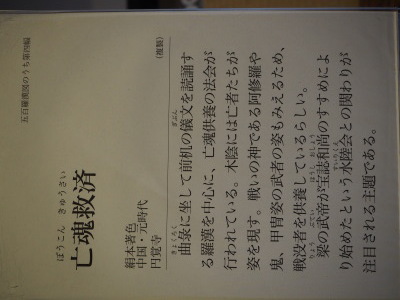 五百羅漢図のうち第四幅
ぼうこん きゅうさい
亡魂救済
絹本著色
中国・元時代
円覚寺
(複製)
きょくろく ぎぶん
曲彔に坐して前机の儀文を読誦す
る羅漢を中心に、亡魂供養の法会が
行われている。木陰には亡者たちが
姿を現す。戦いの神である阿修羅や
鬼、甲冑姿の武者の姿もみえるため、
戦没者を供養しているらしい。
梁の武帝が宝誌和尚のすすめによ
り始めたという水陸会との関わりが
注目される主題である。